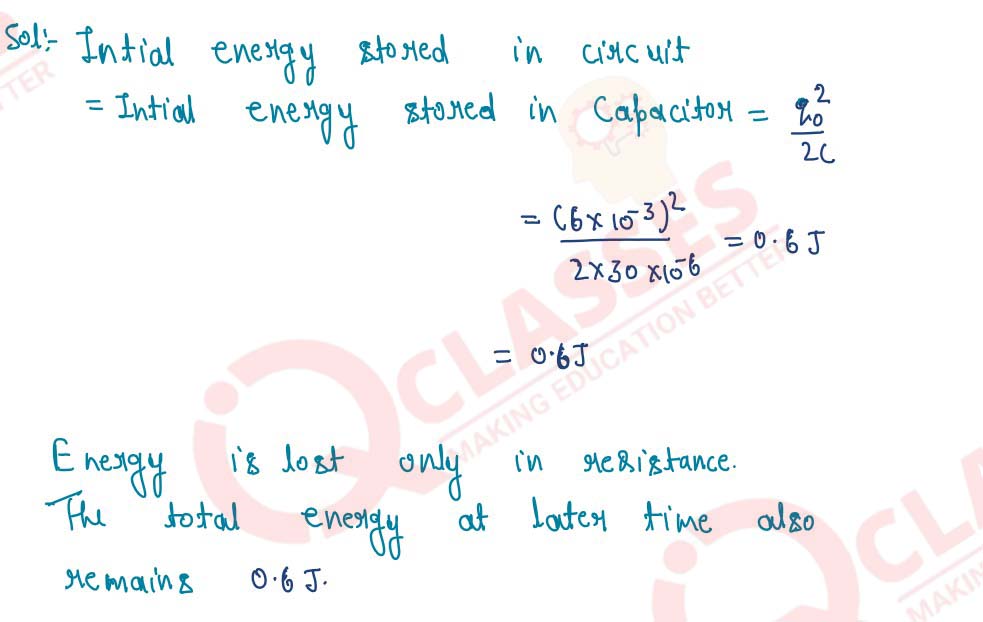 Sol:- Intial energy stored in circuit
= Intial energy stored in Capacitor = q₀²/2C
= (6×10⁻³)²/2×30×10⁻⁶ = 0.6 J
= 0.6J
Energy is lost only in resistance.
The total energy at later time also
remains 0.6 J.
iQ CLASSES
MAKING EDUCATION BETTER
TTER
CLA
MAKIN